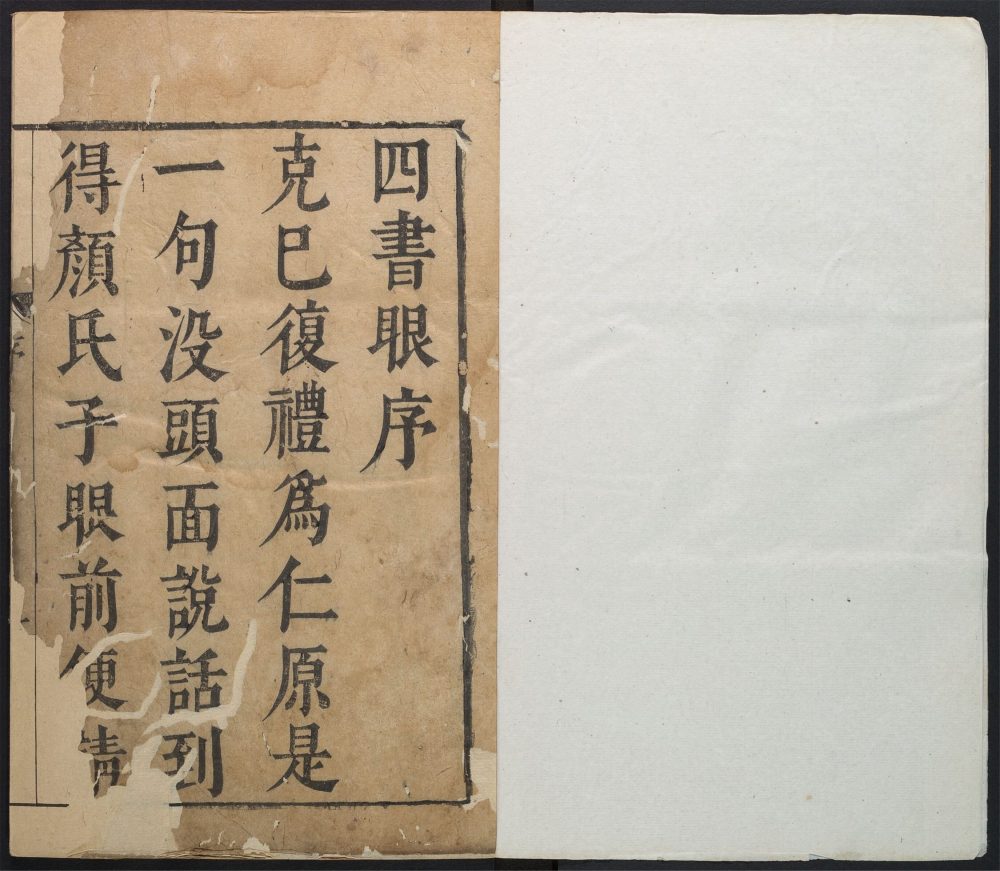 四書眼序
克已復禮爲仁原是
一句没頭面說話到
得顏氏子眼前便請